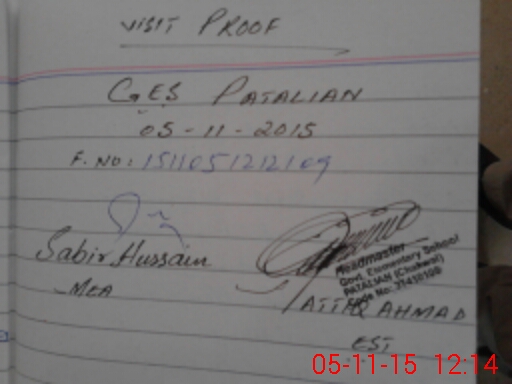 VISIT PROOF
GES PATALIAN
05-11-2015
F.NO: 1511051212109
Sabir Hussain
MEA
Headmaster
Govt. Elementary School
PATALIAN (Chakwal)
Code No: 37410109
ATTIQ AHMAD
EST
05-11-15 12:14